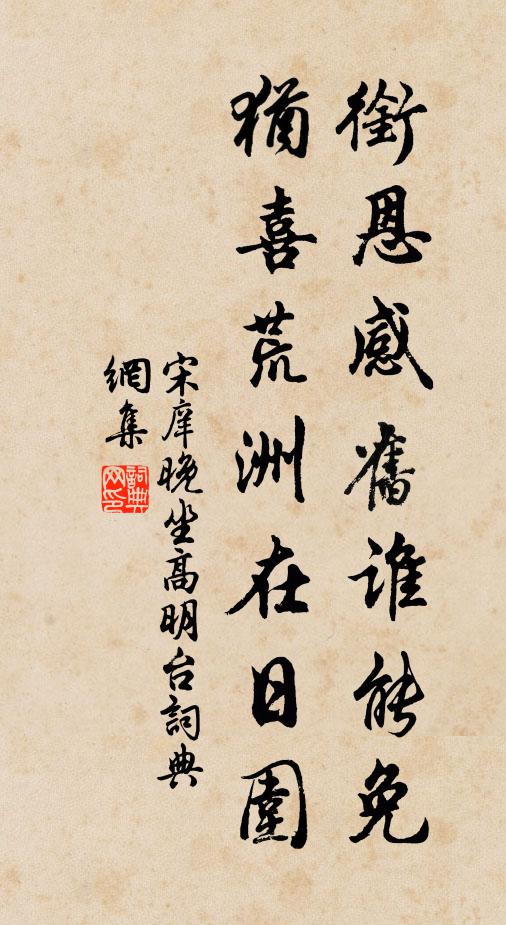 銜恩感舊誰能免
猶喜荒洲在日圍
宋庠晚坐高明台詞典
網集
詞典網印